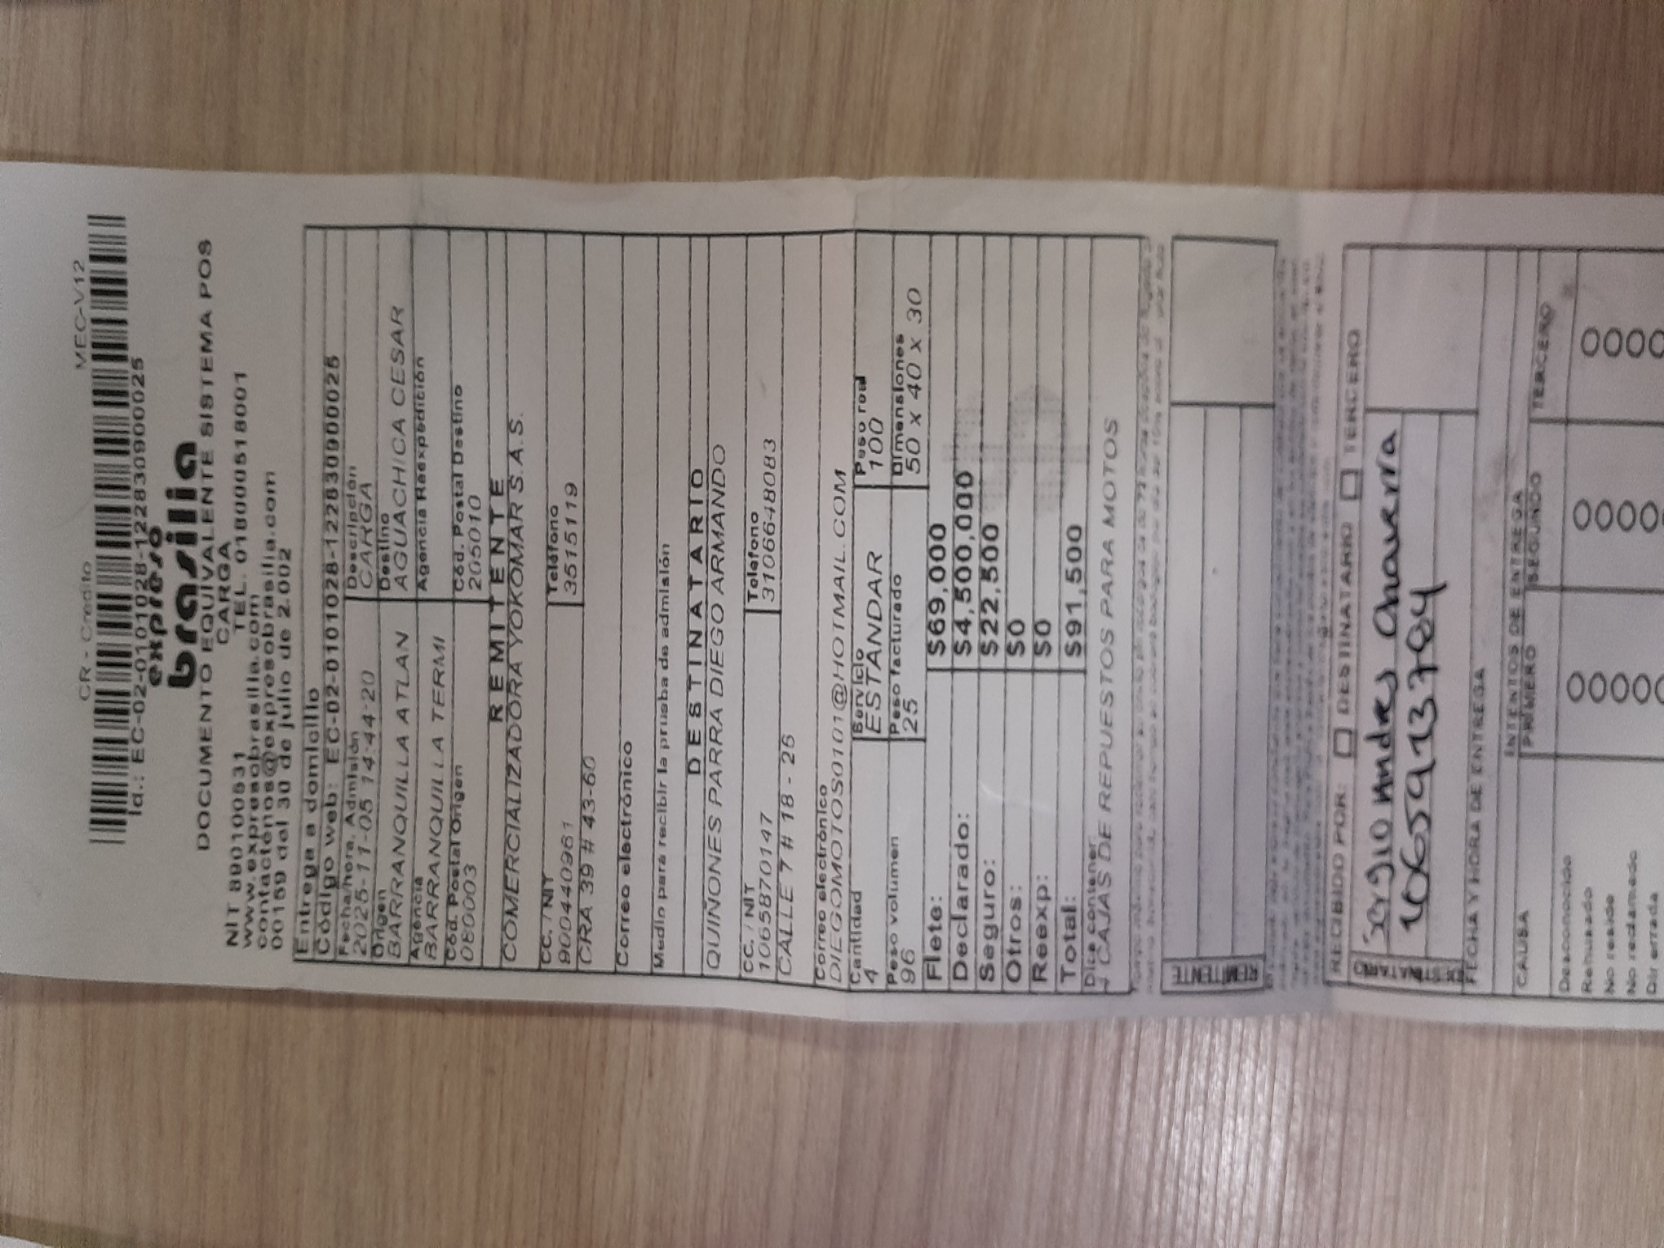 CR - Credito MEC-V12
Id.: EC-02-0101028-1228309000025
expreso
brasilia
DOCUMENTO EQUIVALENTE SISTEMA POS
CARGA
NIT 890100531 TEL. 018000518001
www.expresobrasilia.com
contactenos@expresobrasilia.com
00159 del 30 de julio de 2.002
Entrega a domicilio
Código web: EC-02-0101028-1228309000025
Fecha/hora, Admisión Descripción
2025-11-05 14:44:20 CARGA
Origen Destino
BARRANQUILLA ATLAN AGUACHICA CESAR
Agencia Agencia Reexpedición
BARRANQUILLA TERMI
Cód. Postal Origen Cód. Postal Destino
080003 205010
REMITENTE
COMERCIALIZADORA YOKOMAR S.A.S.
CC. / NIT Teléfono
900440961 3515119
CRA 39 # 43-60
Correo electrónico
Medio para recibir la prueba de admisión
DESTINATARIO
QUINONES PARRA DIEGO ARMANDO
CC. / NIT Telefono
1065870147 3106648083
CALLE 7 # 18 - 26
Correo electrónico
DIEGOMOTOS0101@HOTMAIL.COM
Cantidad Servicio Peso real
4 ESTANDAR 100
Peso volumen Peso facturado Dimensiones
96 25 50 x 40 x 30
Flete: $69,000
Declarado: $4,500,000
Seguro: $22,500
Otros: $0
Reexp: $0
Total: $91,500
Dice contener
4 CAJAS DE REPUESTOS PARA MOTOS
REMITENTE
RECIBIDO POR: DESTINATARIO TERCERO
DESTINATARIO
Sergio Andres
1065913784
FECHA Y HORA DE ENTREGA
INTENTOS DE ENTREGA
CAUSA PRIMERO SEGUNDO TERCERO
Desconocido
Rehusado
No reside
No reclamado
Dir errada